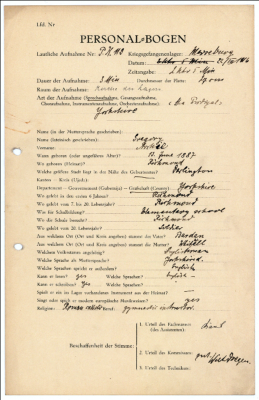 Lfd. Nr
PERSONAL-BOGEN
Lautliche Aufnahme Nr: P.K. 112
Kriegsgefangenenlager: Merseburg
Datum:
Zeitangabe: 2 Uhr 5 Min
Dauer der Aufnahme: 3 Min
Durchmesser der Platte: 27 cm
Raum der Aufnahme:
Art der Aufnahme (Sprechaufnahme, Gesangsaufnahme,
Choraufnahme, Instrumentenaufnahme, Orchesteraufnahme):
Yorkshire
Name (in der Muttersprache geschrieben):
Name (lateinisch geschrieben): Gregory
Vorname:
Wann geboren (oder ungefähres Alter)? 13. June 1887
Wo geboren (Heimat)? Richmond
Welche größere Stadt liegt in der Nähe des Geburtsortes? Darlington
Kanton – Kreis (Ujedz):
Departement – Gouvernement (Gubernija) – Grafschaft (County): Yorkshire
Wo gelebt in den ersten 6 Jahren? Richmond
Wo gelebt vom 7. bis 20. Lebensjahr? Richmond
Was für Schulbildung? Elementary school
Wo die Schule besucht? Richmond
Wo gelebt vom 20. Lebensjahr?
Aus welchem Ort (Ort und Kreis angeben) stammt der Vater?
Aus welchem Ort (Ort und Kreis angeben) stammt die Mutter?
Welchem Volksstamm angehörig?
Welche Sprache als Muttersprache?
Welche Sprachen spricht er außerdem?
Kann er lesen? yes Welche Sprachen?
Kann er schreiben? yes Welche Sprachen?
Spielt er ein im Lager vorhandenes Instrument aus der Heimat?
Singt oder spielt er modern europäische Musikweisen? yes
Religion: Roman cathol. Beruf: gymnastic instructor
Beschaffenheit der Stimme:
1. Urteil des Fachmanns
(des Assistenten):
2. Urteil des Kommissars: gut Wilh. Doegen.
3. Urteil des Technikers: